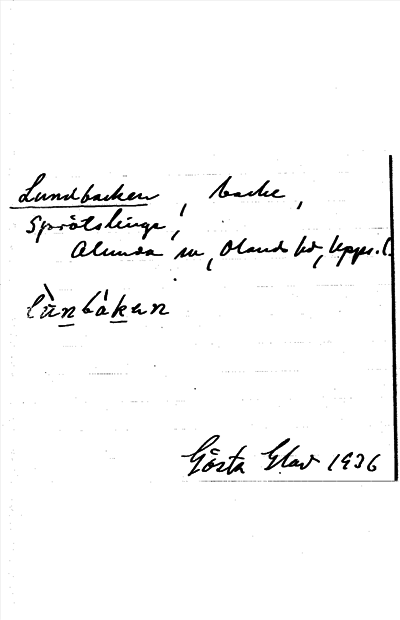 Lundbacken, backe,
Sprötslinge,
Alunda sn, Olands hd, Upps. l.
lùnbákən
Gösta Glad 1936